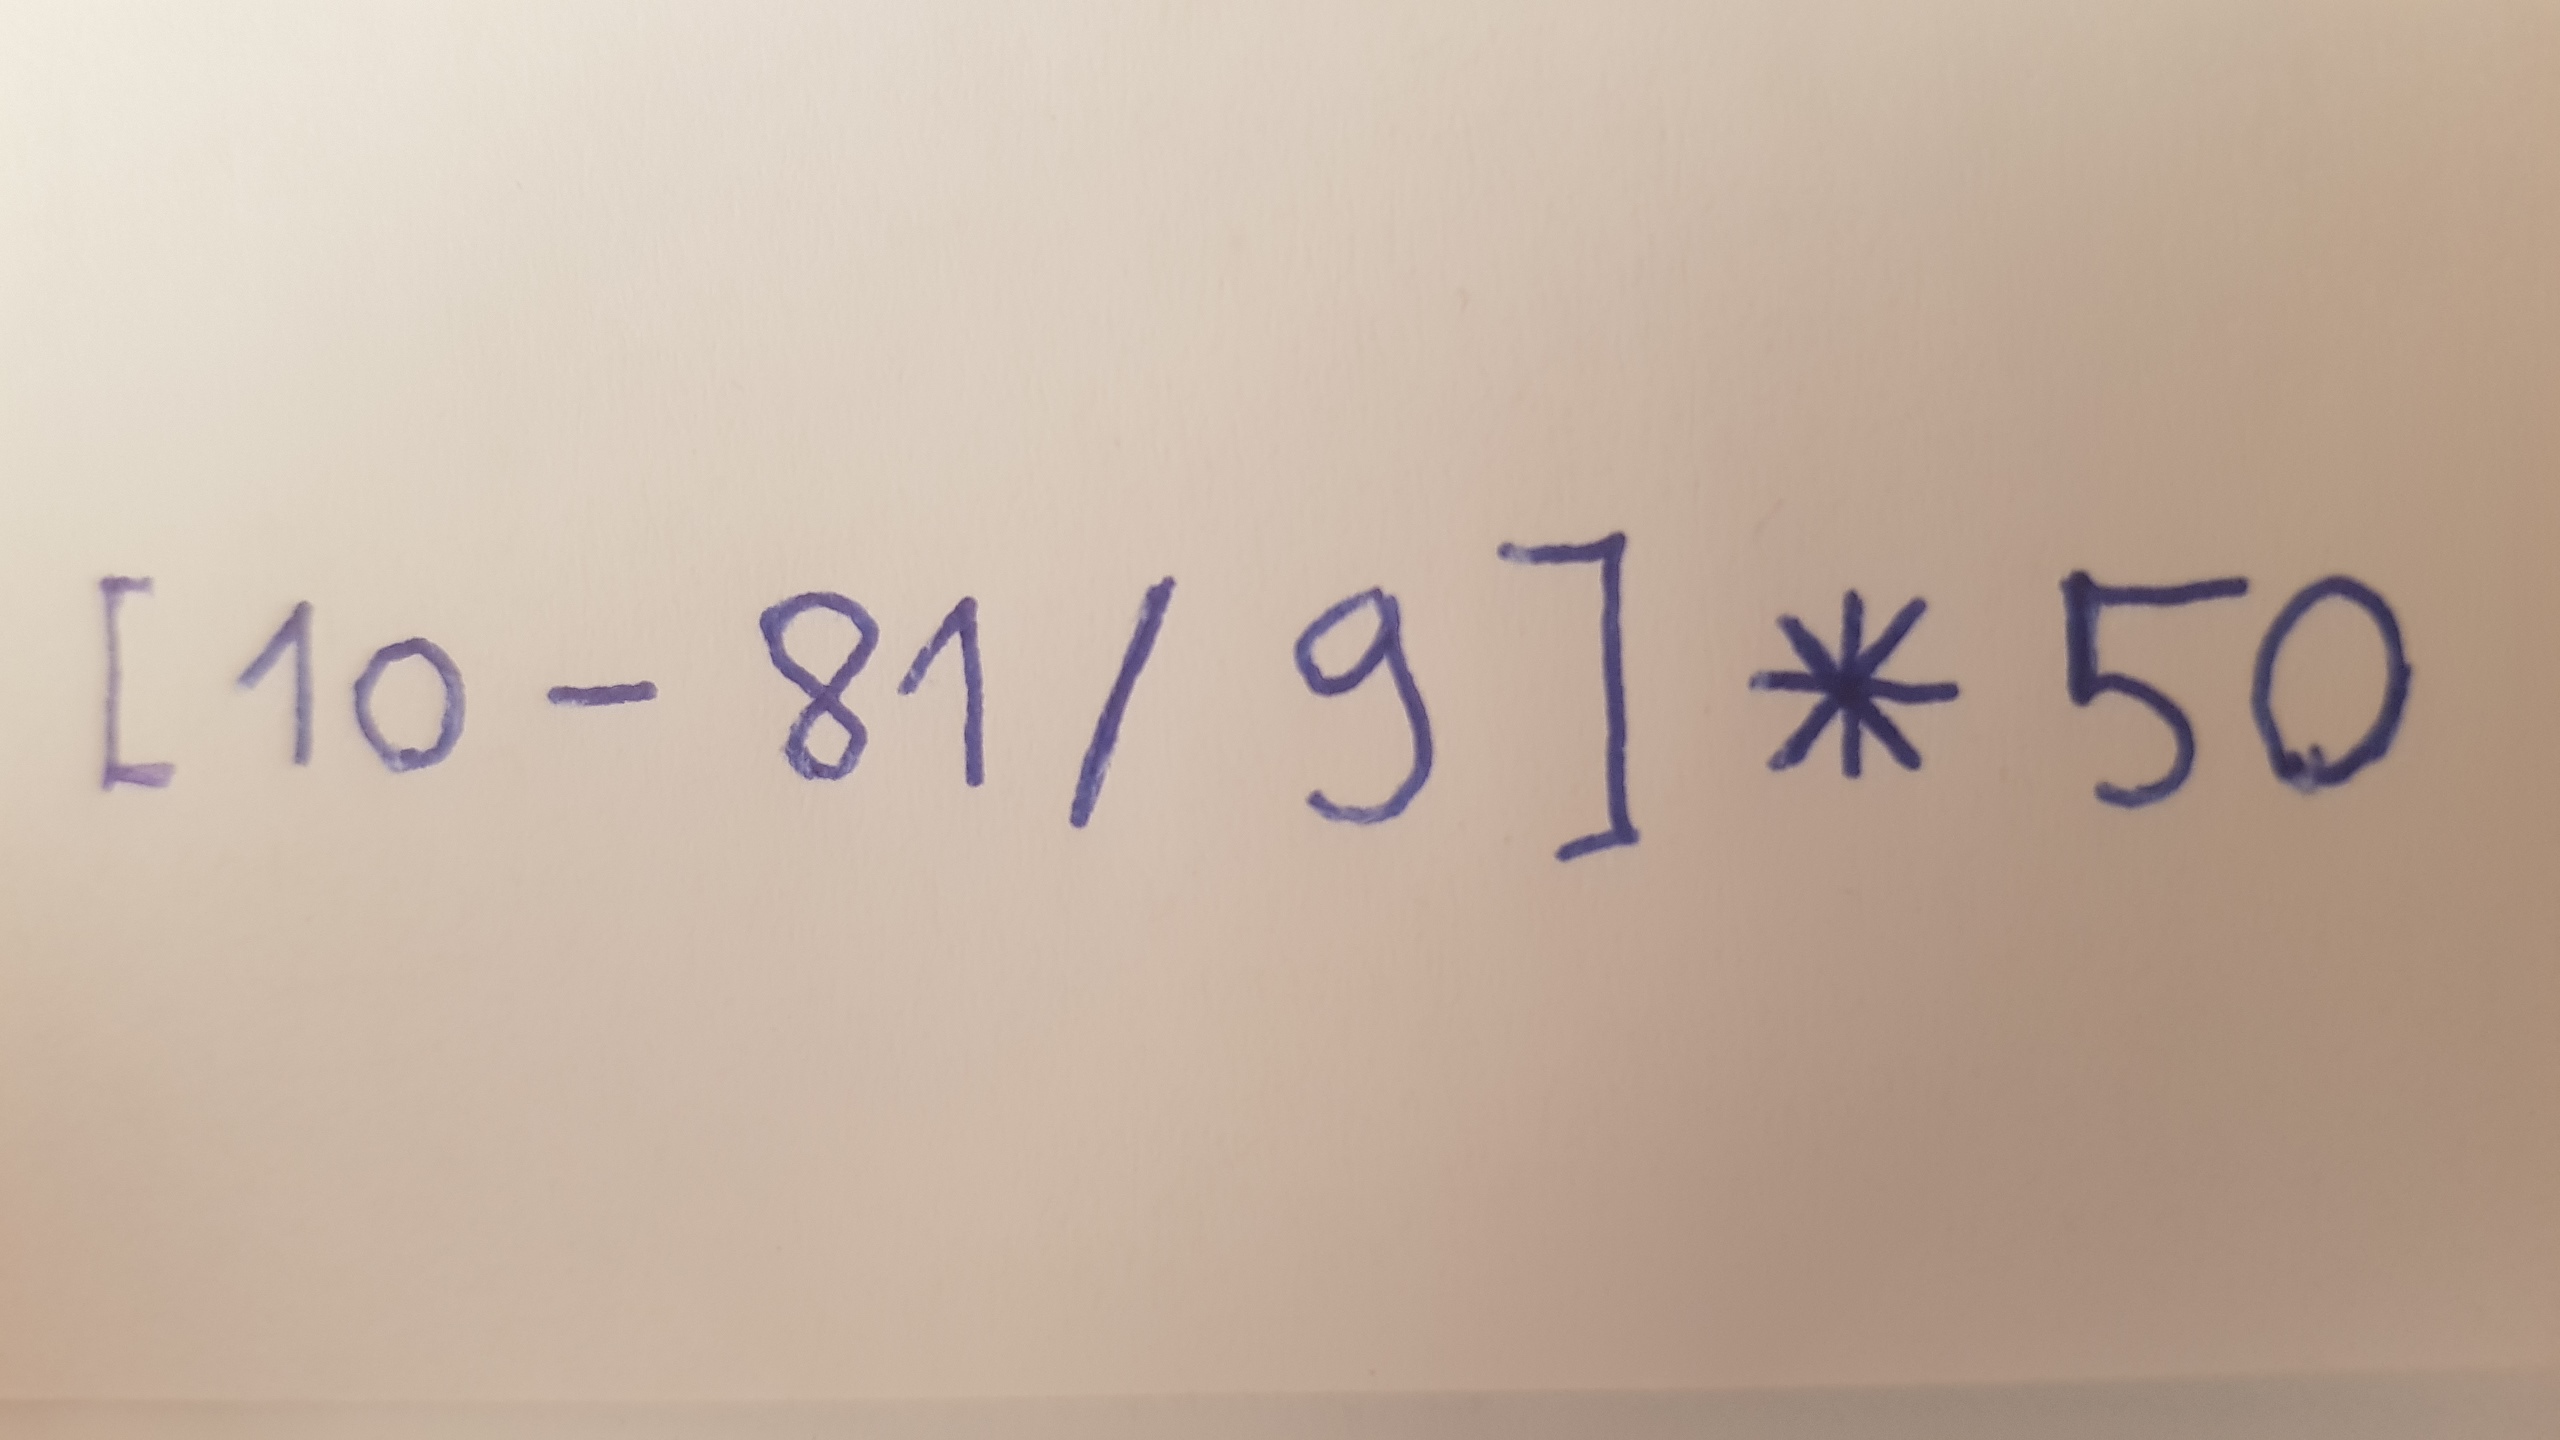 [10 - 81 / 9] * 50